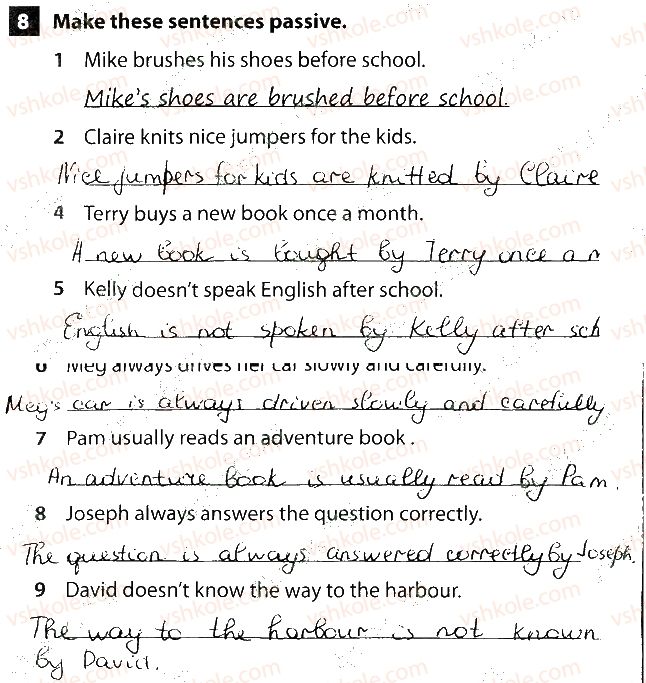 8 Make these sentences passive.
1 Mike brushes his shoes before school.
Mike's shoes are brushed before school.
2 Claire knits nice jumpers for the kids.
Nice jumpers for kids are knitted by Claire
4 Terry buys a new book once a month.
A new book is bought by Terry once a
5 Kelly doesn't speak English after school.
English is not spoken by Kelly after sch
6 Meg always drives her car slowly and carefully.
Meg's car is always driven slowly and carefully
7 Pam usually reads an adventure book .
An adventure book is usually read by Pam.
8 Joseph always answers the question correctly.
The question is always answered correctly by Joseph.
9 David doesn't know the way to the harbour.
The way to the harbour is not known
by David.